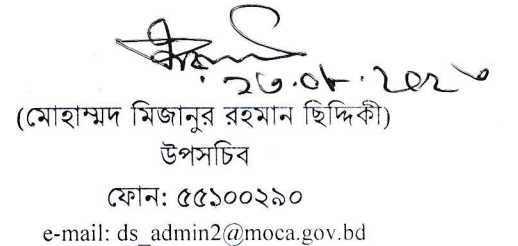 (মোহাম্মদ মিজানুর রহমান ছিদ্দিকী)
উপসচিব
ফোন: ৫৫১০০২৯০
e-mail: ds_admin2@moca.gov.bd